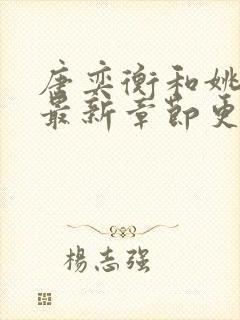 唐奕衡和姚
最新章节更
楊志强